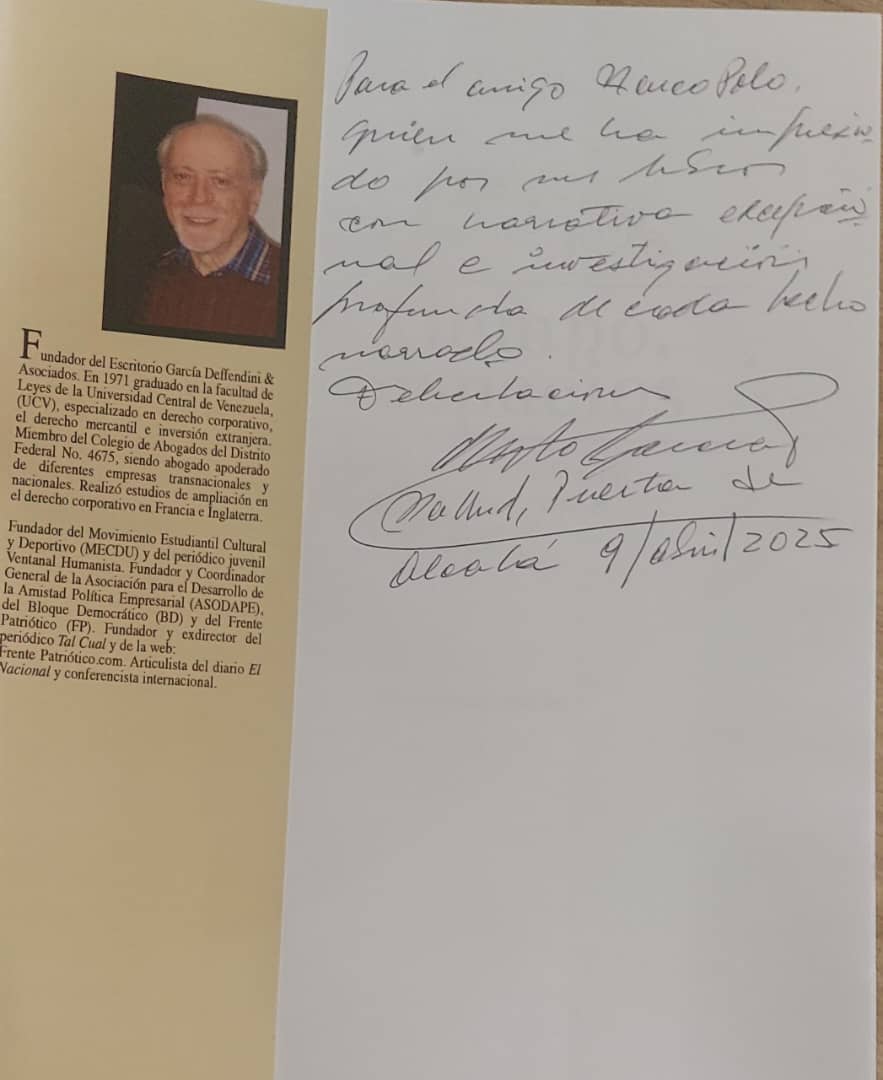 Fundador del Escritorio García Deffendini &
Asociados. En 1971 graduado en la facultad de
Leyes de la Universidad Central de Venezuela,
(UCV), especializado en derecho corporativo,
el derecho mercantil e inversión extranjera.
Miembro del Colegio de Abogados del Distrito
Federal No. 4675, siendo abogado apoderado
de diferentes empresas transnacionales y
nacionales. Realizó estudios de ampliación en
el derecho corporativo en Francia e Inglaterra.
Fundador del Movimiento Estudiantil Cultural
y Deportivo (MECDU) y del periódico juvenil
Ventanal Humanista. Fundador y Coordinador
General de la Asociación para el Desarrollo de
la Amistad Política Empresarial (ASODAPE),
del Bloque Democrático (BD) y del Frente
Patriótico (FP). Fundador y exdirector del
periódico Tal Cual y de la web:
Frente Patriótico.com. Articulista del diario El
Nacional y conferencista internacional.
Para el amigo Marco Polo.
quien me ha impresio-
do por sus libros
con narrativa excepcio-
nal e investigación
profunda de cada hecho
narrado.
Felicitaciones
García
Madrid, Puerta de
Alcalá 9/abril/2025